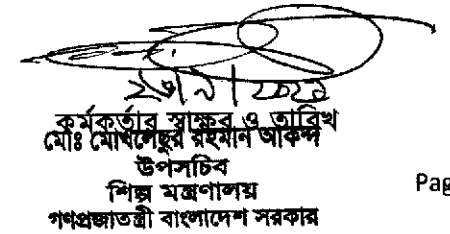 কর্মকর্তার স্বাক্ষর ও তারিখ
মোঃ মোখলেছুর রহমান আকন্দ
উপসচিব
শিল্প মন্ত্রণালয়
Pag
গণপ্রজাতন্ত্রী বাংলাদেশ সরকার